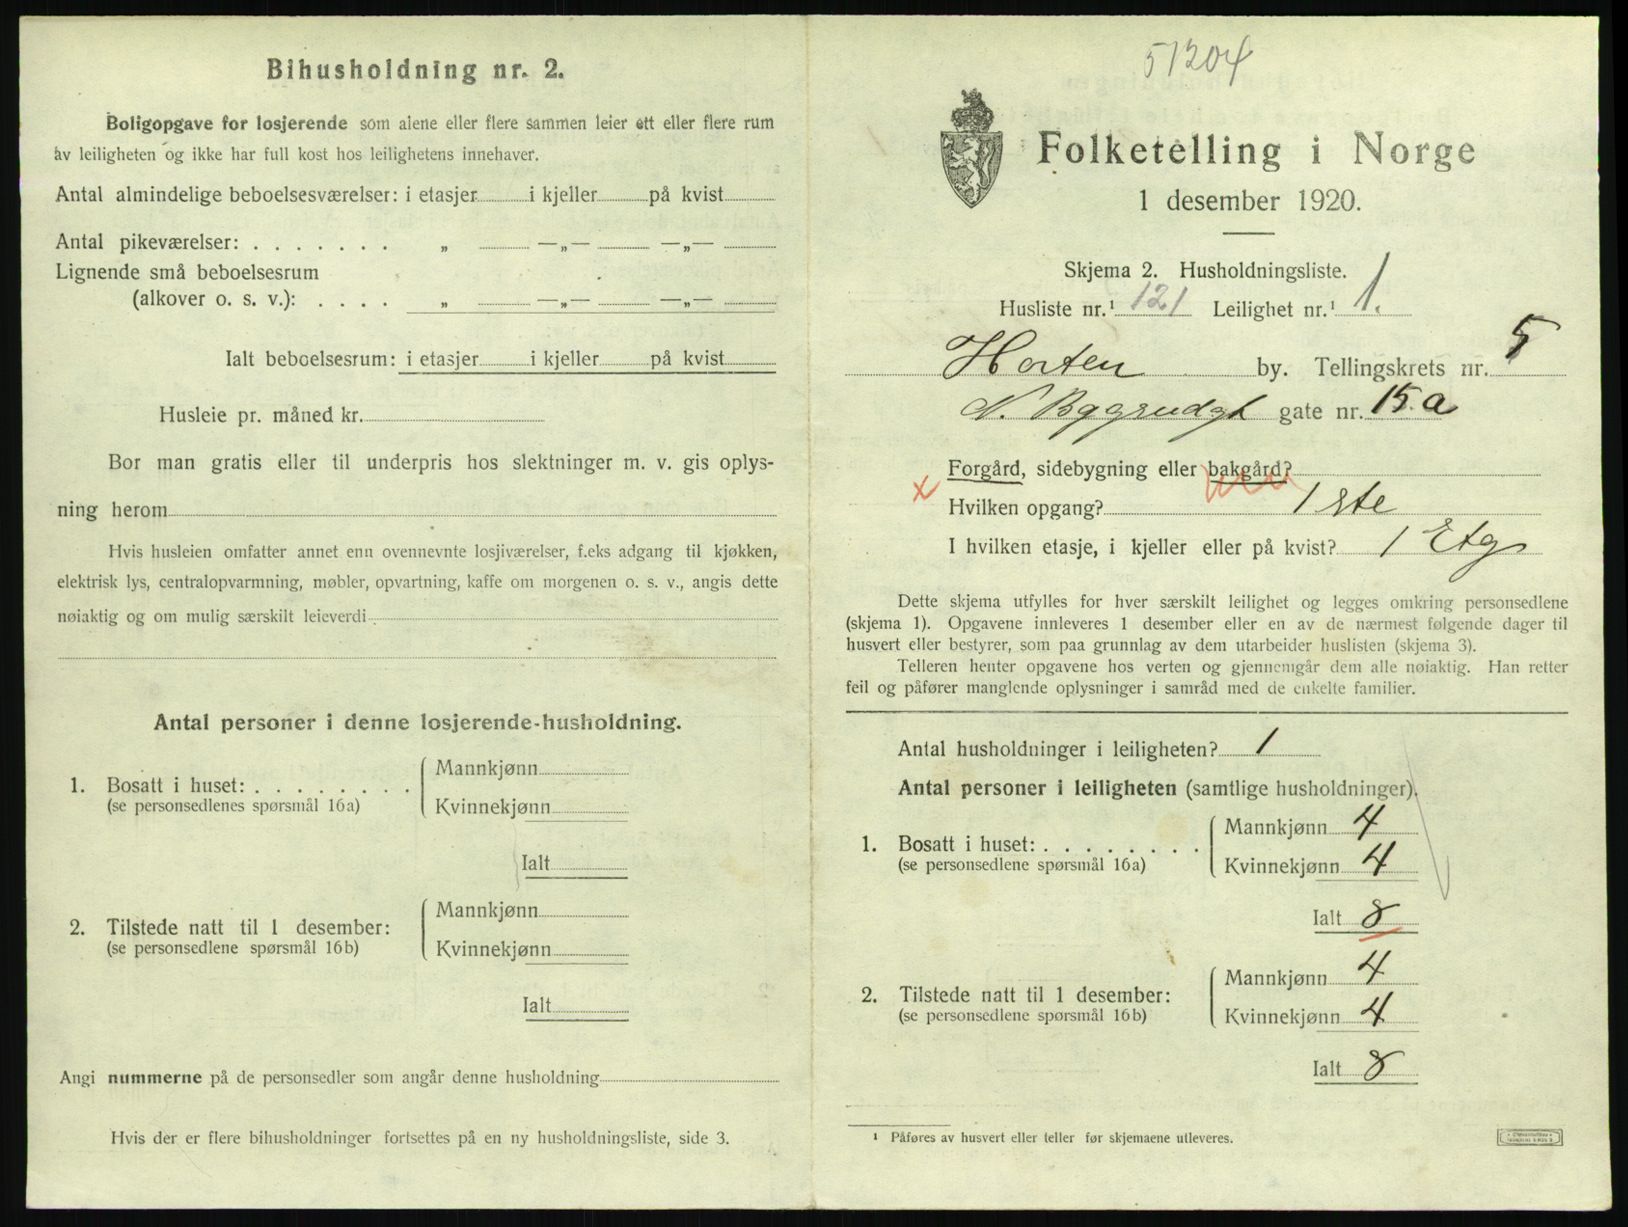 Bihusholdning nr. 2.
Boligopgave for losjerende som alene eller flere sammen leier ett eller flere rum
av leiligheten og ikke har full kost hos leilighetens innehaver.
Antal almindelige beboelsesværelser: i etasjer i kjeller på kvist
Antal pikeværelser: . . . . . . . „ —„— —„—
Lignende små beboelsesrum
(alkover o. s. v.): . . . . „ —„— —„—
Ialt beboelsesrum: i etasjer i kjeller på kvist
Husleie pr. måned kr.
Bor man gratis eller til underpris hos slektninger m. v. gis oplys-
ning herom
Hvis husleien omfatter annet enn ovennevnte losjiværelser, f.eks adgang til kjøkken,
elektrisk lys, centralopvarmning, møbler, opvartning, kaffe om morgenen o. s. v., angis dette
nøiaktig og om mulig særskilt leieverdi
Antal personer i denne losjerende-husholdning.
1. Bosatt i huset: . . . . . . . .
(se personsedlenes spørsmål 16a)
Mannkjønn
Kvinnekjønn
Ialt
2. Tilstede natt til 1 desember:
(se personsedlene spørsmål 16b)
Mannkjønn
Kvinnekjønn
Ialt
Angi nummerne på de personsedler som angår denne husholdning
Hvis der er flere bihusholdninger fortsettes på en ny husholdningsliste, side 3.
51204
Folketelling i Norge
1 desember 1920.
Skjema 2. Husholdningsliste.
Husliste nr.¹ 121 Leilighet nr.¹ 1.
Horten by. Tellingskrets nr. 5
N. gate nr. 15a
Forgård, sidebygning eller bakgård?
x Hvilken opgang? 1ste
I hvilken etasje, i kjeller eller på kvist? 1 Etg
Dette skjema utfylles for hver særskilt leilighet og legges omkring personsedlene
(skjema 1). Opgavene innleveres 1 desember eller en av de nærmest følgende dager til
husvert eller bestyrer, som paa grunnlag av dem utarbeider huslisten (skjema 3).
Telleren henter opgavene hos verten og gjennemgår dem alle nøiaktig. Han retter
feil og påfører manglende oplysninger i samråd med de enkelte familier.
Antal husholdninger i leiligheten? 1
Antal personer i leiligheten (samtlige husholdninger).
1. Bosatt i huset: . . . . . . . .
(se personsedlene spørsmål 16a)
Mannkjønn 4
Kvinnekjønn 4
Ialt 8
2. Tilstede natt til 1 desember:
(se personsedlene spørsmål 16b)
Mannkjønn 4
Kvinnekjønn 4
Ialt 8
¹ Påføres av husvert eller teller før skjemaene utleveres.